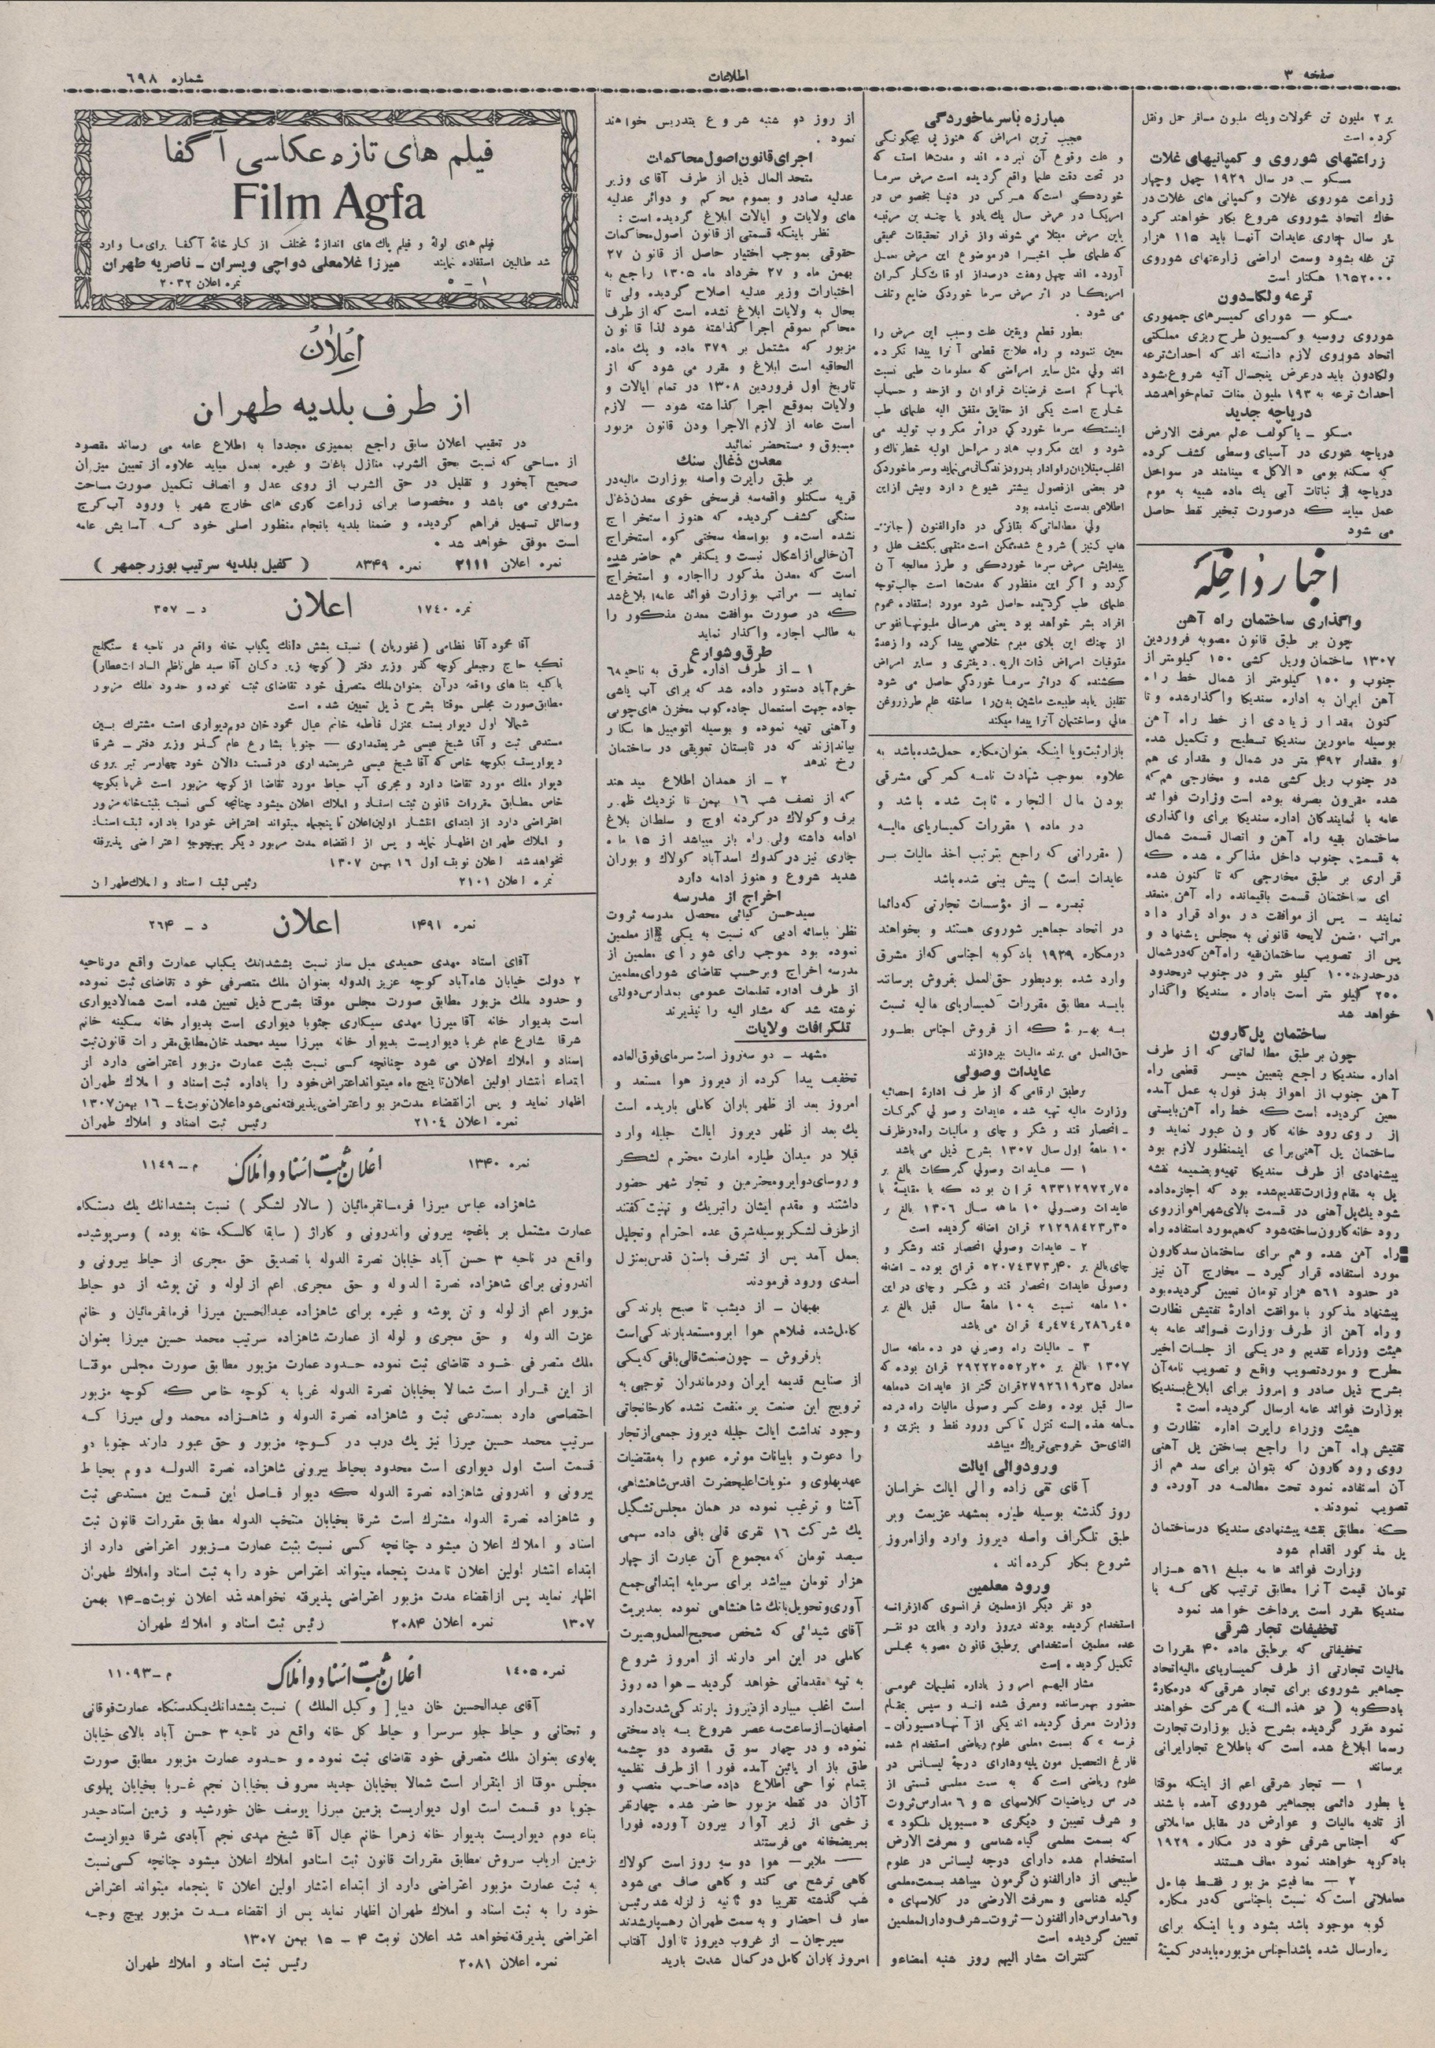 صفحه ۳
اطلاعات
شماره ۶۹۸
بر ۲ ملیون تن محمولات ویك ملیون مسافر حمل ونقل
کرده است
زراعتهای شوروی و کمپانیهای غلات
مسکو ـ در سال ۱۹۲۹ چهل وچهار
زراعت شوروی غلات و کمپانی های غلات در
خاك اتحاد شوروی شروع بکار خواهند کرد
در سال جاری عایدات آنها باید ۱۱۵ هزار
تن غله بشود وسعت اراضی زارعتهای شوروی
۱۶۵۲۰۰۰ هکتار است
ترعه ولگادون
مسکو — شورای کمیسرهای جمهوری
شوروی روسیه و کمسیون طرح ریزی مملکتی
اتحاد شوروی لازم دانسته اند که احداث ترعه
ولگادون باید درعرض پنجسال آتیه شروع شود
احداث ترعه به ۱۹۳ ملیون منات تمام خواهد شد
دریاچه جدید
مسکو — یاکولف عالم معرفت الارض
دریاچه شوری در آسیای وسطی کشف کرده
که سکنه بومی «الاکل» مینامند در سواحل
دریاچه از نباتات آبی یك ماده شبیه به موم
عمل میاید که درصورت تبخیر نفط حاصل
می شود
اخبار داخله
واگذاری ساختمان راه آهن
چون بر طبق قانون مصوبه فروردین
۱۳۰۷ ساختمان وریل کشی ۱۵۰ کیلومتر از
جنوب و ۱۵۰ کیلومتر از شمال خط راه
آهن ایران به اداره سندیکا واگذارشده و تا
کنون مقدار زیادی از خط راه آهن
بوسیله مامورین سندیکا تسطیح و تکمیل شده
و مقدار ۴۹۲ متر در شمال و مقداری هم
در جنوب ریل کشی شده و مخارجی هم که
شده مقرون بصرفه بوده است وزارت فوائد
عامه با نمایندگان اداره سندیکا برای واگذاری
ساختمان بقیه راه آهن و اتصال قسمت شمال
به قسمت جنوب داخل مذاکره شده که
قراری بر طبق مخارجی که تا کنون شده
ای ساختمان قسمت باقیمانده راه آهن منعقد
نمایند — پس از موافقت در مواد قرار داد
مراتب ضمن لایحه قانونی به مجلس پیشنهاد و
پس از تصویب ساختمان بقیه راه آهن که در شمال
در حدود ۱۰۰ کیلو متر و در جنوب در حدود
۲۵۰ کیلو متر است باداره سندیکا واگذار
خواهد شد
ساختمان پل کارون
چون بر طبق مطالعاتی که از طرف
اداره سندیکا راجع بتعیین میسر قطعی راه
آهن جنوب از اهواز بدز فول به عمل آمده
معین گردیده است که خط راه آهن بایستی
از روی رود خانه کارون عبور نماید و
ساختمان پل آهنی برای اینمنظور لازم بود
پیشنهادی از طرف سندیکا تهیه و بضمیمه نقشه
پل به مقام وزارت تقدیم شده بود که اجازه داده
شود یك پل آهنی در قسمت بالای شهر اهواز روی
رود خانه کارون ساخته شود که هم مورد استفاده راه
راه آهن شده و هم برای ساختمان سد کارون
مورد استفاده قرار گیرد ـ مخارج آن نیز
در حدود ۵۶۱ هزار تومان تعیین گردیده بود
پیشنهاد مذکور با موافقت ادارهٔ تفتیش نظارت
و راه آهن از طرف وزارت فوائد عامه به
هیئت وزراء تقدیم و در یکی از جلسات اخیر
مطرح و مورد تصویب واقع و تصویب نامه آن
بشرح ذیل صادر و امروز برای ابلاغ بسندیکا
بوزارت فوائد عامه ارسال گردیده است :
هیئت وزراء راپرت اداره نظارت و
تفتیش راه آهن را راجع بساختن پل آهنی
روی رود کارون که بتوان برای سد هم از
آن استفاده نمود تحت مطالعه در آورده و
تصویب نمودند .
که مطابق نقشه پیشنهادی سندیکا در ساختمان
پل مذکور اقدام شود
وزارت فوائد عامه مبلغ ۵۶۱ هزار
تومان قیمت آنرا مطابق ترتیب کلی که با
سندیکا مقرر است پرداخت خواهد نمود
تخفیفات تجار شرقی
تخفیفاتی که بر طبق ماده ۴۰ مقررات
مالیات تجارتی از طرف کمیساریای مالیه اتحاد
جماهیر شوروی برای تجار شرقی که در مکارهٔ
بادکوبه ( در هذه السنه ) شرکت خواهند
نمود مقرر گردیده بشرح ذیل بوزارت تجارت
رسما ابلاغ شده است که باطلاع تجار ایرانی
برسانند
۱ — تجار شرقی اعم از اینکه موقتا
یا بطور دائمی بجماهیر شوروی آمده باشند
از تادیه مالیات و عوارض در مقابل معاملاتی
که اجناس شرقی خود در مکاره ۱۹۲۹
بادکوبه خواهند نمود معاف هستند
۲ — معافیت مزبور فقط شامل
معاملاتی است که نسبت باجناسی که در مکاره
کوبه موجود باشد بشود و یا اینکه برای
ره ارسال شده باشد اجناس مزبوره باید در کمیتهٔ
مبارزه با سرماخوردگی
عجیب ترین امراض که هنوز پی بچگونگی
و علت وقوع آن نبرده اند و مدتها است که
در تحت دقت علما واقع گردیده است مرض سرما
خوردگی است که هر کس در دنیا بخصوص در
امریکا در عرض سال یك یا دو یا چندین مرتبه
باین مرض مبتلا می شوند و از قرار تحقیقات عمیقی
که علمای طب اخیرا در موضوع این مرض بعمل
آورده اند چهل وهفت درصد از اوقات کار گران
امریکا در اثر مرض سرما خوردگی ضایع و تلف
می شود .
بطور قطع ویقین علت وسبب این مرض را
معین ننموده و راه علاج قطعی آنرا پیدا نکرده
اند ولی مثل سایر امراضی که معلومات طبی نسبت
بانها کم است فرضیات فراوان و از حد و حساب
خارج است یکی از حقایق متفق الیه علمای طب
اینستکه سرما خوردگی در اثر مکروب تولید می
شود و این مکروب ها در مراحل اولیه خطرناك و
اغلب مبتلایان را وادار بدرود زندگانی می نماید و سرما خوردگی
در بعضی از فصول بیشتر شیوع دارد و بیش از این
اطلاعی بدست نیامده بود
ولی مطالعاتی که بتازگی در دارالفنون ( جانزـ
هاپ کینز ) شروع شده ممکن است منتهی بکشف علل و
پیدایش مرض سرما خوردگی و طرز معالجه آن
گردد و اگر این منظور که مدتها است جالب توجه
علمای طب گردیده حاصل شود مورد استفاده عموم
افراد بشر خواهد بود یعنی هر سالی ملیونها نفوس
از چنك این بلای مبرم خلاصی پیدا کرده و از عدهٔ
متوفیات امراض ذات الریه ، دیفتری و سایر امراض
کشنده که در اثر سرما خوردگی حاصل می شود
تقلیل یابد طبیعت ماشین بدن را ساخته علم طرز روغن
مالی وساختمان آنرا پیدا میکند
بازار ثبت و یا اینکه بعنوان مکاره حمل شده باشد به
علاوه بموجب شهادت نامه کمرکی مشرقی
بودن مال التجاره ثابت شده باشد و
در ماده ۱ مقررات کمیساریای مالیه
( مقرراتی که راجع بترتیب اخذ مالیات بسر
عایدات است ) پیش بینی شده باشد
تبصره ـ از مؤسسات تجارتی که دائما
در اتحاد جماهیر شوروی هستند و بخواهند
در مکاره ۱۹۲۹ بادکوبه اجناسی که از مشرق
وارد شده بود بطور حق العمل بفروش برسانند
باید مطابق مقررات کمیساریای مالیه نسبت
به بهرهٔ که از فروش اجناس بطور
حق العمل می برند مالیات بپردازند
عایدات وصولی
بر طبق ارقامی که از طرف ادارهٔ احصائیه
وزارت مالیه تهیه شده عایدات وصولی گمرکات
ـ انحصار قند و شکر و چای و مالیات راه در ظرف
۱۰ ماههٔ اول سال ۱۳۰۷ بشرح ذیل می باشد
۱ — عایدات وصولی گمرکات بالغ بر
۹۳۳۱۲۹۷۲٫۷۵ قران بوده که با مقایسهٔ با
عایدات وصولی ۱۰ ماهه سال ۱۳۰۶ بالغ بر
۲۱۲۹۸۴۲۳٫۳۵ قران اضافه گردیده است
۲ ـ عایدات وصولی انحصار قند وشکر و
چای بالغ بر ۵۲۰۷۴۳۷۳٫۴۰ قران بوده ـ اضافه
وصولی عایدات انحصار قند و شکر و چای در این
۱۰ ماهه نسبت به ۱۰ ماههٔ سال قبل بالغ بر
۴٫۴۷۴٫۲۸۶٫۴۵ قران می باشد
۳ ـ مالیات راه وصولی در ده ماهه سال
۱۳۰۷ بالغ بر ۲۹۲۲۲۵۵۲٫۲۰ قران بوده که
معادل ۲۷۹۲۶۱۹٫۳۵ قران کمتر از عایدات ده ماهه
سال قبل بوده وعلت کسر وصولی مالیات راه در ده
ماهه هذه السنه تنزل تاکس ورود نفط و بنزین و
الغای حق خروجی تریاك میباشد
ورود والی ایالت
آقای تقی زاده والی ایالت خراسان
روز گذشته بوسیله طیاره بمشهد عزیمت وبر
طبق تلگراف واصله دیروز وارد و از امروز
شروع بکار کرده اند .
ورود معلمین
دو نفر دیگر از معلمین فرانسوی که از فرانسه
استخدام گردیده بودند دیروز وارد و با این دو نفر
عده معلمین استخدامی بر طبق قانون مصوبه مجلس
تکمیل گردیده است
مشار الیهم امروز باداره تعلیمات عمومی
حضور بهمرسانده ومعرفی شده اند و سپس بمقام
وزارت معرفی گردیده اند یکی از آنها «مسیوژان ـ
فرسه » که بسمت معلمی علوم ریاضی استخدام شده
فارغ التحصیل مون پلیه و دارای درجهٔ لیسانس در
علوم ریاضی است که به سمت معلمی قسمتی از
درس ریاضیات کلاسهای ۵ و ۶ مدارس ثروت
و شرف تعیین و دیگری «مسیوپل ملکود »
که بسمت معلمی گیاه شناسی و معرفت الارض
استخدام شده دارای درجه لیسانس در علوم
طبیعی از دارالفنون گرمون میباشد بسمت معلمی
گیاه شناسی و معرفت الارضی در کلاسهای ۵
و ۶ مدارس دار الفنون — ثروت ـ شرف و دار المعلمین
تعیین گردیده است
کنترات مشار الیهم روز شنبه امضاء و
از روز دو شنبه شروع بتدریس خواهند
نمود .
اجرای قانون اصول محاکمات
متحد المال ذیل از طرف آقای وزیر
عدلیه صادر و بعموم محاکم و دوائر عدلیه
های ولایات و ایالات ابلاغ گردیده است :
نظر باینکه قسمتی از قانون اصول محاکمات
حقوقی بموجب اختیار حاصل از قانون ۲۷
بهمن ماه و ۲۷ خرداد ماه ۱۳۰۵ راجع به
اختیارات وزیر عدلیه اصلاح گردیده ولی تا
بحال به ولایات ابلاغ نشده است که از طرف
محاکم بموقع اجرا گذاشته شود لذا قانون
مزبور که مشتمل بر ۳۷۹ ماده و یك ماده
الحاقیه است ابلاغ و مقرر می شود که از
تاریخ اول فروردین ۱۳۰۸ در تمام ایالات و
ولایات بموقع اجرا گذاشته شود — لازم
است عامه از لازم الاجرا بودن قانون مزبور
مسبوق و مستحضر نمائید
معدن ذغال سنك
بر طبق راپرت واصله بوزارت مالیه در
قریه سکتلو واقعه سه فرسخی خوی معدن ذغال
سنگی کشف گردیده که هنوز استخراج
نشده است و بواسطه سختی کوه استخراج
آن خالی از اشکال نیست و یکنفر هم حاضر شده
است که معدن مذکور را اجاره و استخراج
نماید — مراتب بوزارت فوائد عامه ابلاغ شد
که در صورت موافقت معدن مذکور را
به طالب اجاره واگذار نماید
طرق و شوارع
۱ ـ از طرف اداره طرق به ناحیه ۶۸
خرم آباد دستور داده شد که برای آب پاشی
جاده جهت استعمال جاده کوب مخزن های چوبی
و آهنی تهیه نموده و بوسیله اتومبیل ها بکار
بیاندازند که در تابستان تعویقی در ساختمان
رخ ندهد
۲ ـ از همدان اطلاع میدهند
که از نصف شب ۱۶ بهمن تا نزدیك ظهر
برف و کولاك در گردنه اوج و سلطان بلاغ
ادامه داشته ولی راه باز میباشد از ۱۵ ماه
جاری نیز در گدوك اسدآباد کولاك و بوران
شدید شروع و هنوز ادامه دارد
اخراج از مدرسه
سید حسن کیائی محصل مدرسه ثروت
نظر باسائه ادبی که نسبت به یکی از معلمین
نموده بود بموجب رای شورای معلمین از
مدرسه اخراج و بر حسب تقاضای شورای معلمین
از طرف اداره تعلیمات عمومی بمدارس دولتی
نوشته شد که مشار الیه را نپذیرند
تلگرافات ولایات
مشهد ـ دو سه روز است سرمای فوق العاده
تخفیف پیدا کرده از دیروز هوا مستعد و
امروز بعد از ظهر باران کاملی باریده است
یك بعد از ظهر دیروز ایالت جلیله وارد
قبلا در میدان طیاره امارت محترم لشکر
و روسای دوایر و محترمین و تجار شهر حضور
داشتند و مقدم ایشان را تبریك و تهنیت گفتند
از طرف لشکر بوسیله شرق عده احترام و تجلیل
بعمل آمد پس از تشرف باستان قدس بمنزل
اسدی ورود فرمودند
بهبهان ـ از دیشب تا صبح بارندگی
کامل شده فعلا هم هوا ابر و مستعد بارندگی است
بارفروش ـ چون صنعت قالی بافی که یکی
از صنایع قدیمه ایران و در مازندران توجهی به
ترویج این صنعت پر منفعت نشده کارخانجاتی
وجود نداشت ایالت جلیله دیروز جمعی از تجار
را دعوت و با بیانات موثره عموم را به مقتضیات
عهد پهلوی و منویات اعلیحضرت اقدس شاهنشاهی
آشنا و ترغیب نموده در همان مجلس تشکیل
یك شرکت ۱۶ نفری قالی بافی داده سهمی
سیصد تومان که مجموع آن عبارت از چهار
هزار تومان میباشد برای سرمایه ابتدائی جمع
آوری و تحویل بانك شاهنشاهی نموده بمدیریت
آقای شیدائی که شخص صحیح العمل و بصیرت
کاملی در این امر دارند از امروز شروع
به تهیه مقدماتی خواهد گردید ـ هوا ده روز
است اغلب میبارد از دیروز بارندگی شدت دارد
اصفهان ـ از ساعت سه عصر شروع به باد سختی
نموده و در چهار سوق مقصود دو چشمه
طاق بازار پائین آمده فورا از طرف نظمیه
بتمام نواحی اطلاع داده صاحب منصب و
آژان در نقطه مزبور حاضر شده چهار نفر
زخمی از زیر آوار بیرون آورده فورا
بمریضخانه می فرستند
— ملایر — هوا دو سه روز است کولاك
کاهی ترشح می کند و کاهی صاف می شود
شب گذشته تقریبا دو ثانیه زلزله شد رئیس
معارف احضار و به سمت طهران رهسپار شدند
سیرجان ـ از غروب دیروز تا اول آفتاب
امروز باران کامل در کمال شدت بارید
فیلم های تازه عکاسی آگفا
Film Agfa
فیلم های لولهٔ و فیلم پاك های اندازهٔ مختلف از کارخانهٔ آگفا برای ما وارد
شد طالبین استفاده نمایند میرزا غلامعلی دواچی و پسران ـ ناصریه طهران
۱ ـ ۵ نمره اعلان ۲۰۳۲
اعلان
از طرف بلدیه طهران
در تعقیب اعلان سابق راجع بممیزی مجددا به اطلاع عامه می رساند مقصود
از مساحی که نسبت بحق الشرب منازل باغات و غیره بعمل میاید علاوه از تعیین میزان
صحیح آبخور و تقلیل در حق الشرب از روی عدل و انصاف تکمیل صورت مساحت
مشروبی می باشد و مخصوصا برای زراعت کاری های خارج شهر با ورود آب کرج
وسائل تسهیل فراهم گردیده و ضمنا بلدیه بانجام منظور اصلی خود که آسایش عامه
است موفق خواهد شد .
نمره اعلان ۲۱۱۱ نمره ۸۳۴۹ ( کفیل بلدیه سرتیپ بوزرجمهر )
نمره ۱۷۴۰ اعلان د ـ ۳۵۷
آقا محمود آقا نظامی ( غفوریان ) نسبت بشش دانك یکباب خانه واقع در ناحیه ۴ سنگلج
تکیه حاج رجبعلی کوچه گذر وزیر دفتر ( کوچه زیر دکان آقا سید علی ناظم السادات عطار )
با کلیه بناهای واقعه در آن بعنوان ملك متصرفی خود تقاضای ثبت نموده و حدود ملك مزبور
مطابق صورت مجلس موقتا بشرح ذیل تعیین شده است
شمالا اول دیوار بست بمنزل فاطمه خانم عیال محمود خان دوم دیواری است مشترك بین
مستدعی ثبت و آقا شیخ عیسی شریعتمداری — جنوبا بشارع عام گذر وزیر دفتر ـ شرقا
دیواریست بکوچه خاص که آقا شیخ عیسی شریعتمداری در قسمت دالان خود چهار سر تیر بروی
دیوار ملك مورد تقاضا دارد و مجری آب حیاط مورد تقاضا از کوچه مزبور است غربا بکوچه
خاص مطابق مقررات قانون ثبت اسناد و املاك اعلان میشود چنانچه کسی نسبت بثبت خانه مزبور
اعتراضی دارد از ابتدای انتشار اولین اعلان تا پنجماه میتواند اعتراض خود را باداره ثبت اسناد
و املاك طهران اظهار نماید و پس از انقضاء مدت مزبور دیگر بهیچوجه اعتراضی پذیرفته
نخواهد شد اعلان نوبت اول ۱۶ بهمن ۱۳۰۷
نمره اعلان ۲۱۰۱ رئیس ثبت اسناد و املاك طهران
نمره ۱۴۹۱ اعلان د ـ ۲۶۴
آقای استاد مهدی حمیدی مبل ساز نسبت بششدانك یکباب عمارت واقع در ناحیه
۲ دولت خیابان شاه آباد کوچه عزیز الدوله بعنوان ملك متصرفی خود تقاضای ثبت نموده
و حدود ملك مزبور مطابق صورت مجلس موقتا بشرح ذیل تعیین شده است شمالا دیواری
است بدیوار خانه آقا میرزا مهدی سیگاری جنوبا دیواری است بدیوار خانه سکینه خانم
شرقا شارع عام غربا دیواریست بدیوار خانه میرزا سید محمد خان مطابق مقررات قانون ثبت
اسناد و املاك اعلان می شود چنانچه کسی نسبت بثبت عمارت مزبور اعتراضی دارد از
ابتداء انتشار اولین اعلان تا پنج ماه میتواند اعتراض خود را باداره ثبت اسناد و املاك طهران
اظهار نماید و پس از انقضاء مدت مزبور اعتراضی پذیرفته نمی شود اعلان نوبت ۴ ـ ۱۶ بهمن ۱۳۰۷
نمره اعلان ۲۱۰۴ رئیس ثبت اسناد و املاك طهران
نمره ۱۳۴۰ اعلان ثبت اسناد و املاک م ـ ۱۱۴۹
شاهزاده عباس میرزا فرمانفرمائیان ( سالار لشگر ) نسبت بششدانك یك دستگاه
عمارت مشتمل بر باغچه بیرونی واندرونی و کاراژ ( سابقا کالسکه خانه بوده ) وسرپوشیده
واقع در ناحیه ۳ حسن آباد خیابان نصرة الدوله با تصدیق حق مجری از حیاط بیرونی و
اندرونی برای شاهزاده نصرة الدوله و حق مجری اعم از لوله و تن پوشه از دو حیاط
مزبور اعم از لوله و تن پوشه و غیره برای شاهزاده عبدالحسین میرزا فرمانفرمائیان و خانم
عزت الدوله و حق مجری و لوله از عمارت شاهزاده سرتیپ محمد حسین میرزا بعنوان
ملك متصرفی خود تقاضای ثبت نموده حدود عمارت مزبور مطابق صورت مجلس موقتا
از این قرار است شمالا بخیابان نصرة الدوله غربا به کوچه خاص که کوچه مزبور
اختصاصی دارد بمستدعی ثبت و شاهزاده نصرة الدوله و شاهزاده محمد ولی میرزا که
سرتیپ محمد حسین میرزا نیز یك درب در کوچه مزبور و حق عبور دارند جنوبا دو
قسمت است اول دیواری است محدود بحیاط بیرونی شاهزاده نصرة الدوله دوم بحیاط
بیرونی و اندرونی شاهزاده نصرة الدوله که دیوار فاصل این قسمت بین مستدعی ثبت
و شاهزاده نصرة الدوله مشترك است شرقا بخیابان منتخب الدوله مطابق مقررات قانون ثبت
اسناد و املاك اعلان میشود چنانچه کسی نسبت بثبت عمارت مزبور اعتراضی دارد از
ابتداء انتشار اولین اعلان تا مدت پنجماه میتواند اعتراض خود را به ثبت اسناد و املاك طهران
اظهار نماید پس از انقضاء مدت مزبور اعتراضی پذیرفته نخواهد شد اعلان نوبت ۵-۱۴ بهمن
۱۳۰۷ نمره اعلان ۲۰۸۴ رئیس ثبت اسناد و املاك طهران
نمره ۱۴۰۵ اعلان ثبت اسناد و املاک م ـ ۱۱۰۹۳
آقای عبدالحسین خان دیبا [ وکیل الملك ) نسبت بششدانك یکدستگاه عمارت فوقانی
و تحتانی و حیاط جلو سرسرا و حیاط کل خانه واقع در ناحیه ۳ حسن آباد بالای خیابان
پهلوی بعنوان ملك متصرفی خود تقاضای ثبت نموده و حدود عمارت مزبور مطابق صورت
مجلس موقتا از اینقرار است شمالا بخیابان جدید معروف بخیابان نجم غربا بخیابان پهلوی
جنوبا دو قسمت است اول دیواریست بزمین میرزا یوسف خان خورشید و زمین استاد حیدر
بناء دوم دیواریست بدیوار خانه زهرا خانم عیال آقا شیخ مهدی نجم آبادی شرقا دیوازیست
بزمین ارباب سروش مطابق مقررات قانون ثبت اسناد و املاك اعلان میشود چنانچه کسی نسبت
به ثبت عمارت مزبور اعتراضی دارد از ابتداء انتشار اولین اعلان تا پنجماه میتواند اعتراض
خود را به ثبت اسناد و املاك طهران اظهار نماید پس از انقضاء مدت مزبور بهیچ وجه
اعتراضی پذیرفته نخواهد شد اعلان نوبت ۴ ـ ۱۵ بهمن ۱۳۰۷
نمره اعلان ۲۰۸۱ رئیس ثبت اسناد و املاك طهران